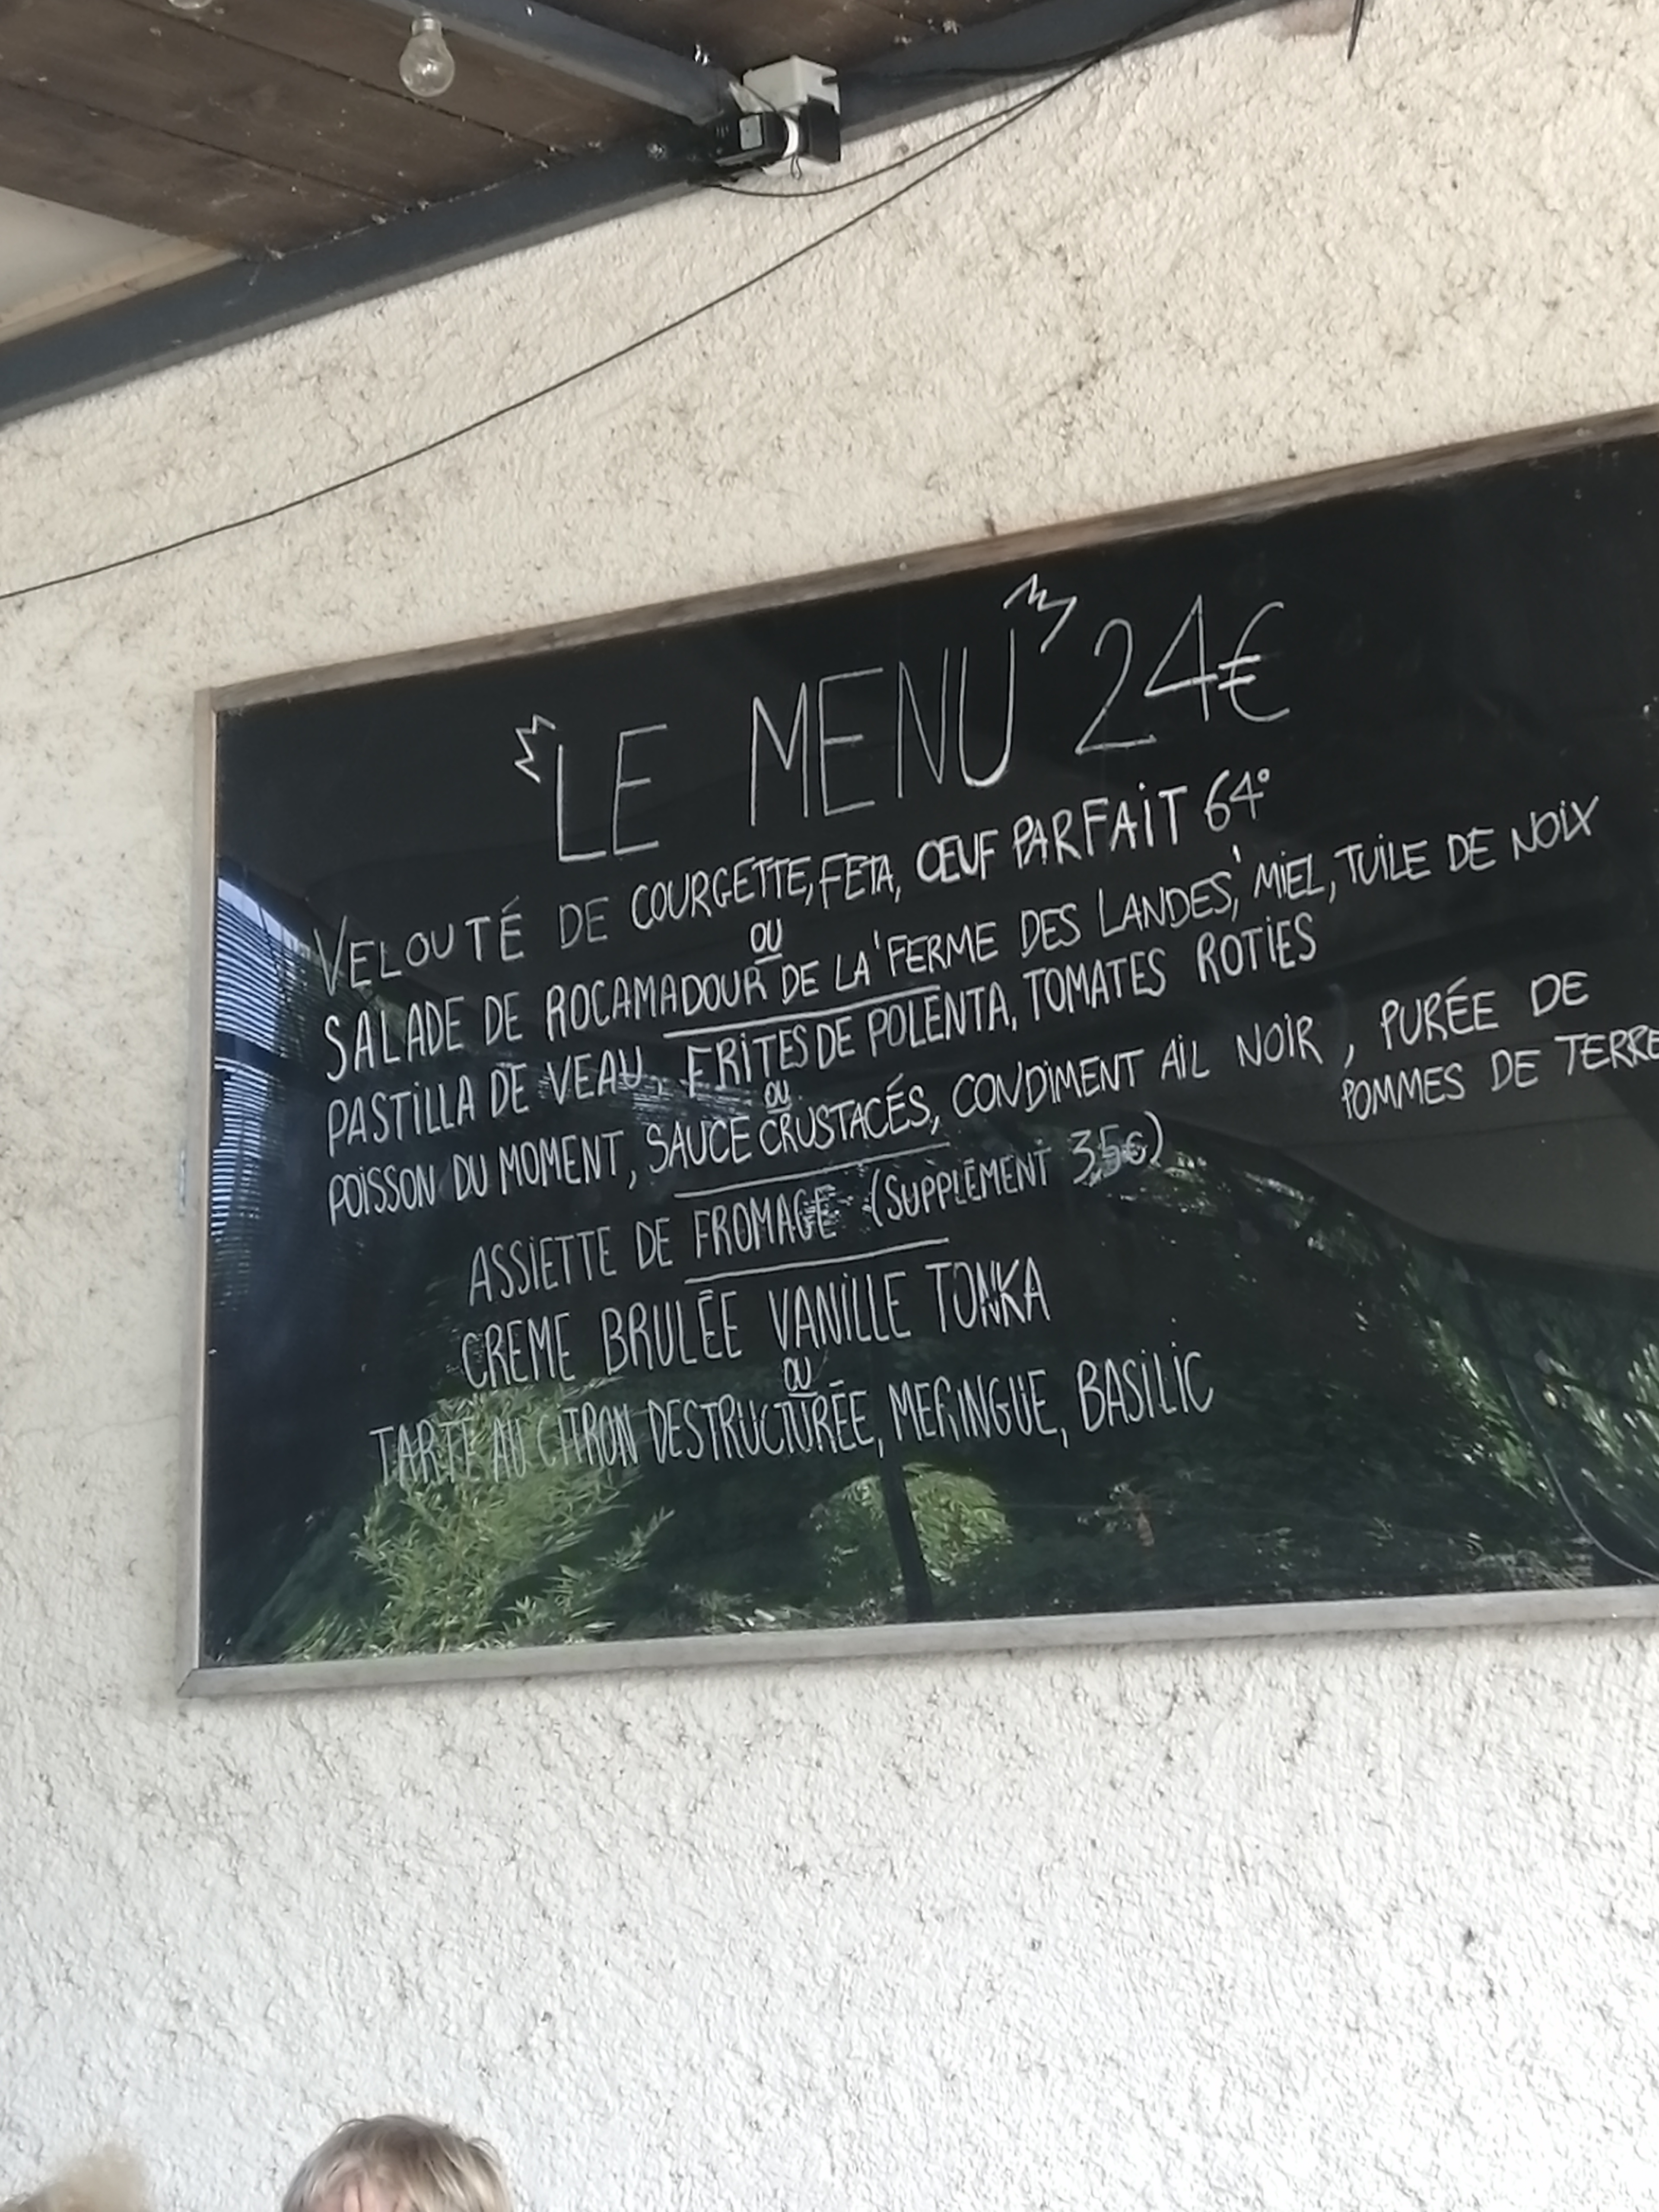 LE MENU 24€
VELOUTÉ DE COURGETTE, FETA, ŒUF PARFAIT 64°
OU
SALADE DE ROCAMADOUR DE LA 'FERME DES LANDES', MIEL, TUILE DE NOIX
PASTILLA DE VEAU, FRITES DE POLENTA, TOMATES ROTIES
OU
POISSON DU MOMENT, SAUCE CRUSTACÉS, CONDIMENT AIL NOIR, PURÉE DE
POMMES DE TERRE
ASSIETTE DE FROMAGE (SUPPLÉMENT 3,5€)
CREME BRULÉE VANILLE TONKA
OU
TARTE AU CITRON DESTRUCTURÉE, MERINGUE, BASILIC